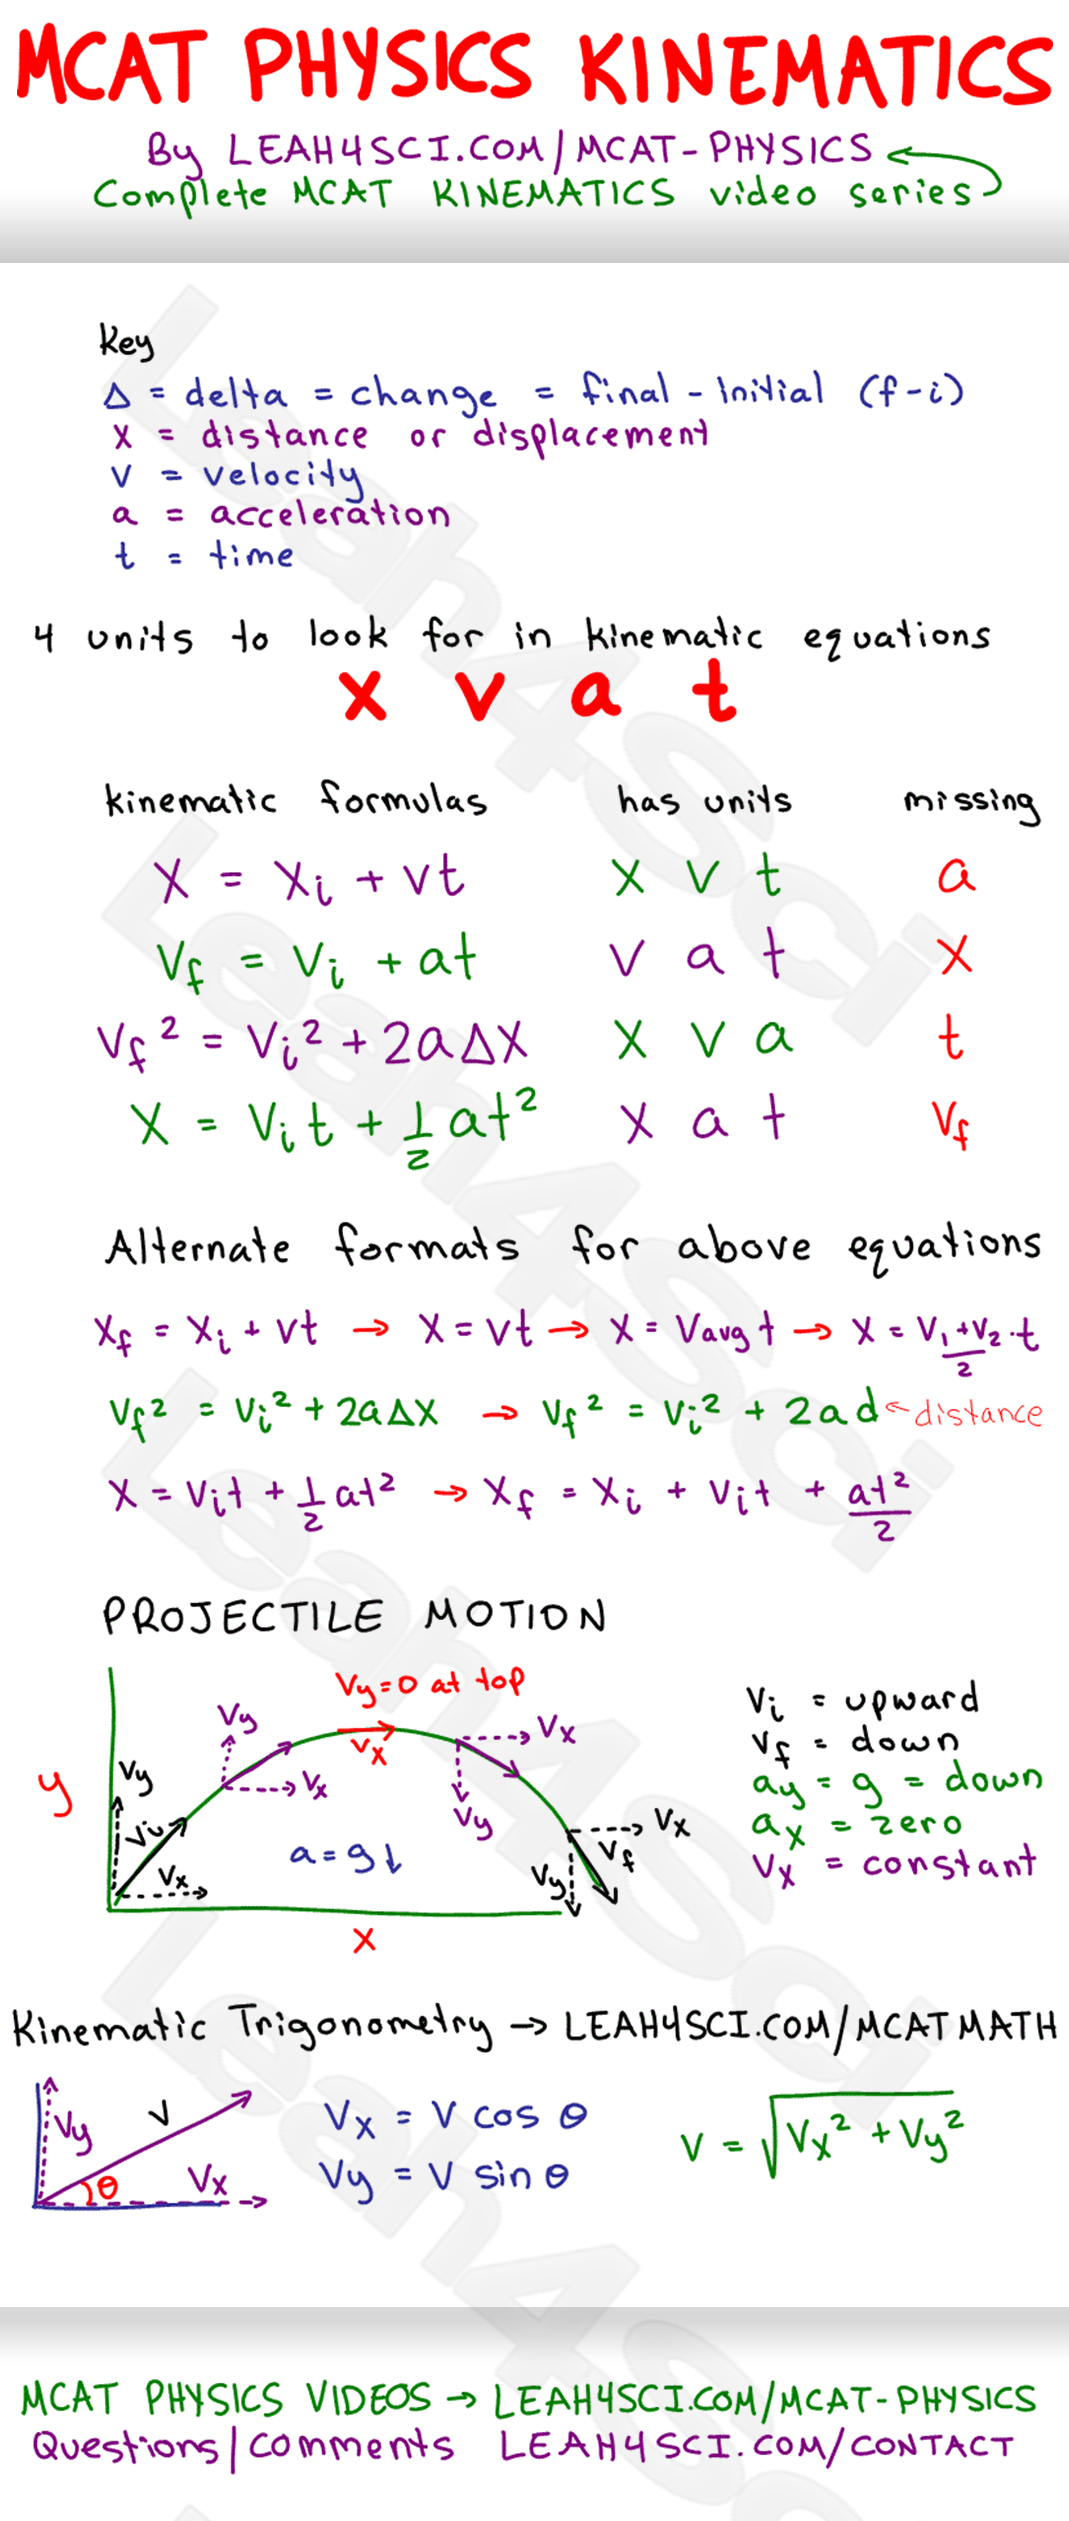 MCAT PHYSICS KINEMATICS
By LEAH4SCI.COM/MCAT-PHYSICS
Complete MCAT KINEMATICS video series
Key
Δ = delta = change = final - initial (f-i)
x = distance or displacement
v = velocity
a = acceleration
t = time
4 units to look for in kinematic equations
x v a t
kinematic formulas has units missing
X = Xi + vt x v t a
Vf = Vi + at v a t x
Vf² = Vi² + 2aΔX x v a t
X = Vit + 1/2 at² x a t Vf
Alternate formats for above equations
Xf = Xi + vt → X = vt → X = Vavg t → X = V₁+V₂/2 · t
Vf² = Vi² + 2aΔX → Vf² = Vi² + 2ad ← distance
X = Vit + 1/2 at² → Xf = Xi + Vit + at²/2
PROJECTILE MOTION
Vy=0 at top
Vy
Vx
Vx
Vx
Vy
y
Vy
Vi
Vx
a = g↓
Vx
Vf
Vy
x
Vi = upward
Vf = down
ay = g = down
ax = zero
Vx = constant
Kinematic Trigonometry → LEAH4SCI.COM/MCATMATH
Vy
V
θ
Vx
Vx = V cos θ
Vy = V sin θ
V = √Vx² + Vy²
MCAT PHYSICS VIDEOS → LEAH4SCI.COM/MCAT-PHYSICS
Questions|Comments LEAH4SCI.COM/CONTACT
Leah4Sci
Leah4Sci
Leah4Sci
Leah4Sci